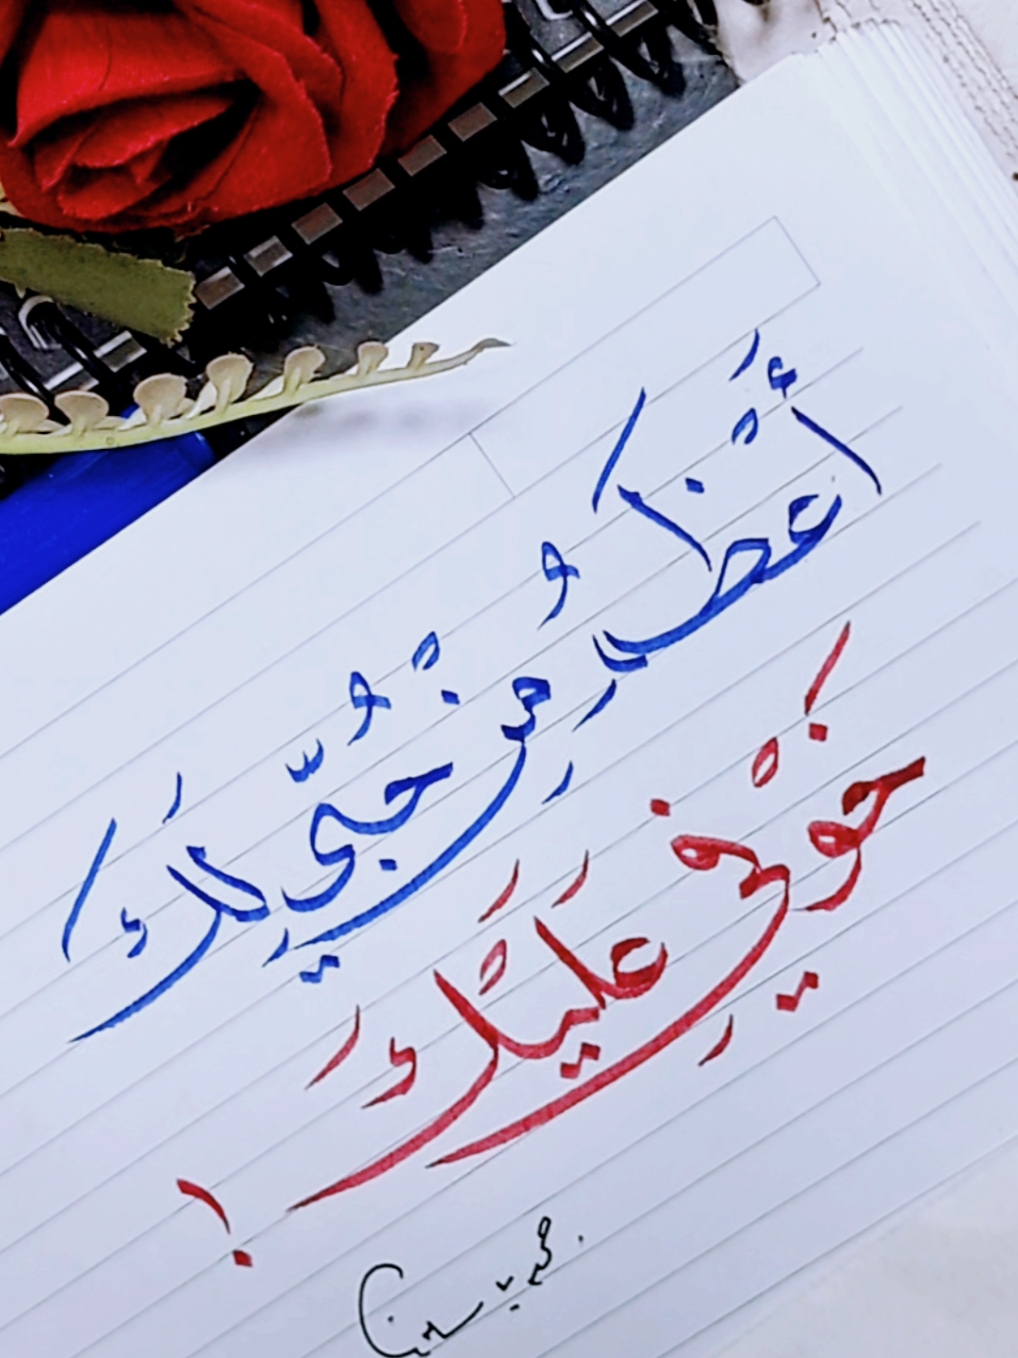 أَعْظَمُ مِنْ حُبِّي لَكَ
خَوْفِي عَلَيْكَ!